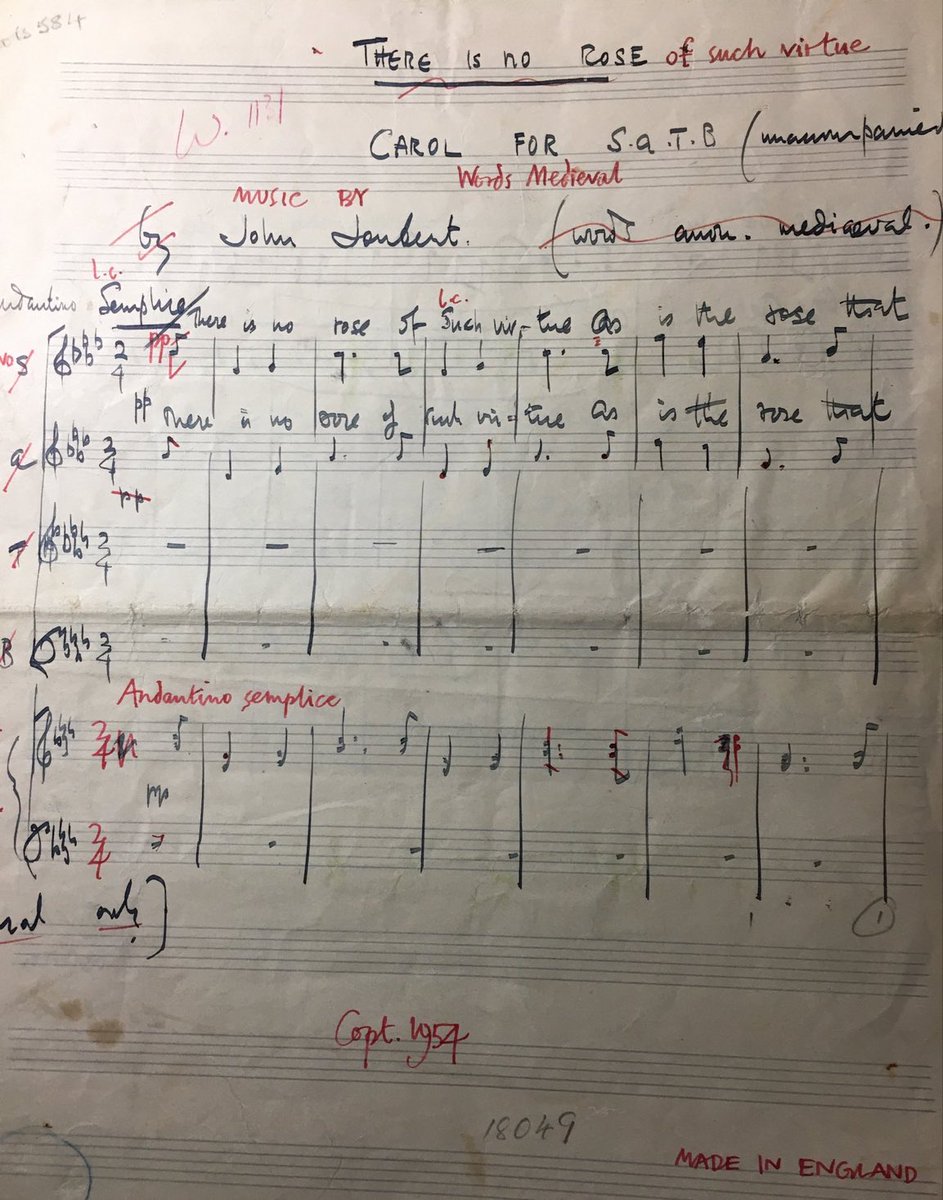 584
THERE is no ROSE of such virtue
W. 1131
CAROL FOR S.A.T.B (unaccompanied
Words Medieval
MUSIC BY
by John Joubert. (words anon. mediaeval.)
l.c.
Semplice
l.c.
There is no rose of Such vir-tue As is the rose that
S
pp
2/4
pp There is no rose of such vir-tue As is the rose that
A
2/4
pp
T
2/4
B
2/4
Andantino semplice
2/4
pp
2/4
only.]
1
Copt. 1954
18049
MADE IN ENGLAND